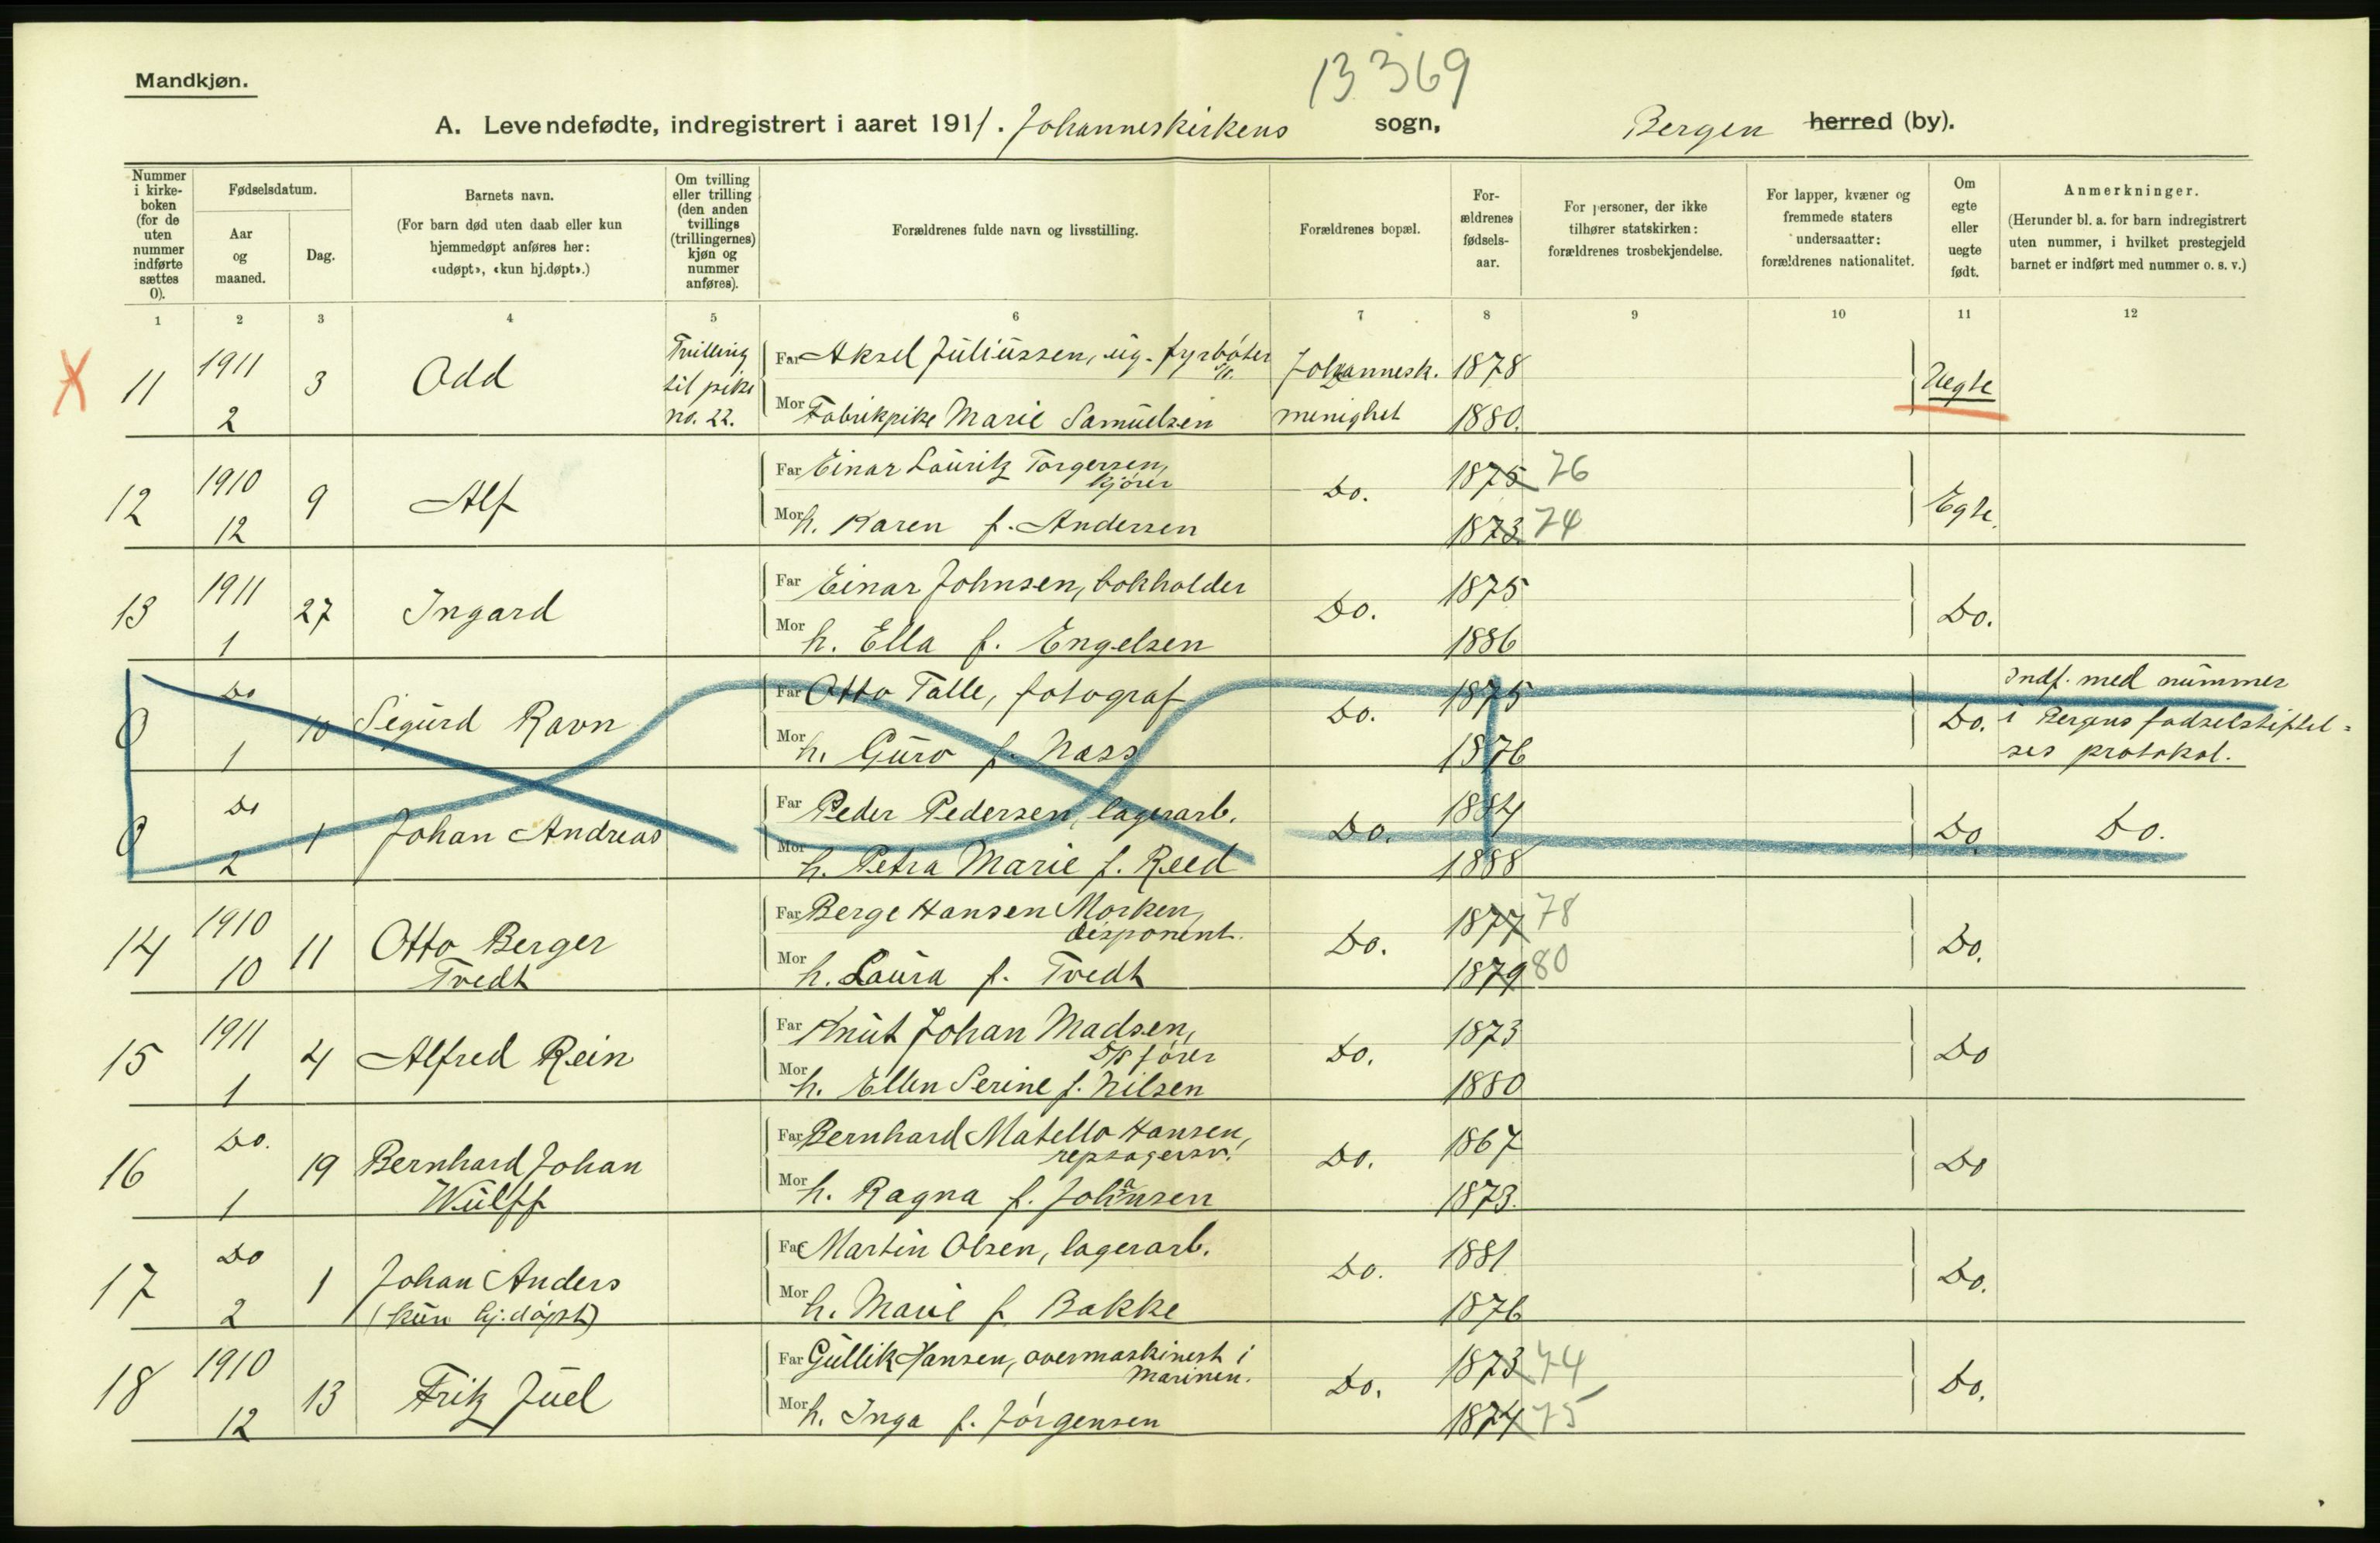 Mandkjøn.
13 369
A. Levendefødte, indregistrert i aaret 1911. Johanneskirkens sogn, Bergen herred (by).
Nummer i kirke-boken (for de uten nummer indførte sættes 0).
Fødselsdatum.
Aar og maaned.
Dag.
Barnets navn.
(For barn død uten daab eller kun hjemmedøpt anføres her: «udøpt», «kun hj.døpt».)
Om tvilling eller trilling (den anden tvillings (trillingernes) kjøn og nummer anføres).
Forældrenes fulde navn og livsstilling.
Forældrenes bopæl.
For-ældrenes fødsels-aar.
For personer, der ikke tilhører statskirken: forældrenes trosbekjendelse.
For lapper, kvæner og fremmede staters undersaatter: forældrenes nationalitet.
Om egte eller uegte født.
Anmerkninger.
(Herunder bl. a. for barn indregistrert uten nummer, i hvilket prestegjeld barnet er indført med nummer o. s. v.)
1 2 3 4 5 6 7 8 9 10 11 12
X 11 1911 2 3 Odd Tvilling til pike no. 22.
Far Aksel Juliussen, ug. fyrbøter Johannesk. 1878 Uegte
Mor Fabrikpike Marie Samuelsen menighet 1880.
12 1910 12 9 Alf
Far Einar Lauritz Torgersen, kjører Do. 1875 76 Egte.
Mor h. Karen f. Andersen 1873 74
13 1911 1 27 Ingard
Far Einar Johnsen, bokholder Do. 1875 Do.
Mor h. Ella f. Engelsen 1886
0 Do 1 10 Sigurd Ravn
Far Otto Talle, fotograf Do. 1875 Do. Indf. med nummer i Bergens fødselsstiftel=
Mor h. Guro f. Næss 1876 ses protokol.
0 Do 2 1 Johan Andreas
Far Peder Pedersen, lagerarb. Do. 1884 Do. Do.
Mor h. Petra Marie f. Reed 1888
14 1910 10 11 Otto Berger Tvedt
Far Berge Hansen Morken, disponent. Do. 1877 78 Do.
Mor h. Laura f. Tvedt 1879 80
15 1911 1 4 Alfred Rein
Far Knut Johan Madsen, D/S fører Do. 1873 Do
Mor h. Ellen Serine f. Nilsen 1880
16 Do. 1 19 Bernhard Johan Wulff
Far Bernhard Matello Hansen, Do. 1867 Do
Mor h. Ragna f. Johansen 1873.
17 Do 2 1 Johan Anders (kun hj.døpt)
Far Martin Olsen, lagerarb. Do. 1881 Do.
Mor h. Marie f. Bakke 1876
18 1910 12 13 Fritz Juel
Far Gullik Hansen, overmaskinist i Marinen. Do. 1873 74 Do.
Mor h. Inga f. Jørgensen 1874 75